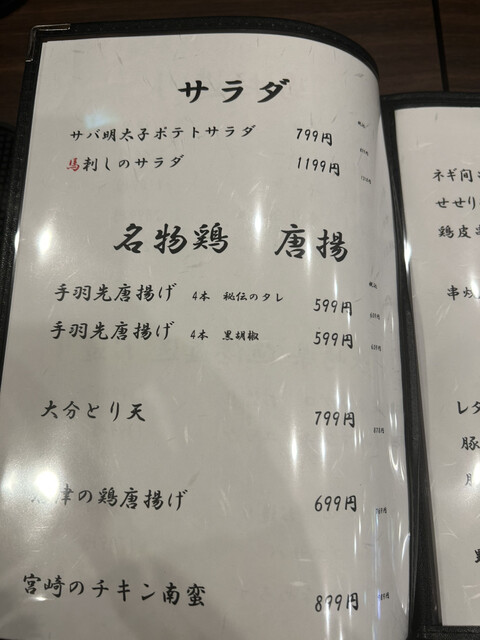 サラダ
サバ明太子ポテトサラダ 799円
馬刺しのサラダ 1199円
名物鶏 唐揚
手羽先唐揚げ 4本 秘伝のタレ 599円
手羽先唐揚げ 4本 黒胡椒 599円
大分とり天 799円
津の鶏唐揚げ 699円
宮崎のチキン南蛮 899円
ネギ間
せせり
鶏皮
串
レタ
豚